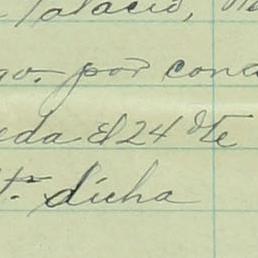 Palacio,
go. por cona
eda el 24 dte
dicha